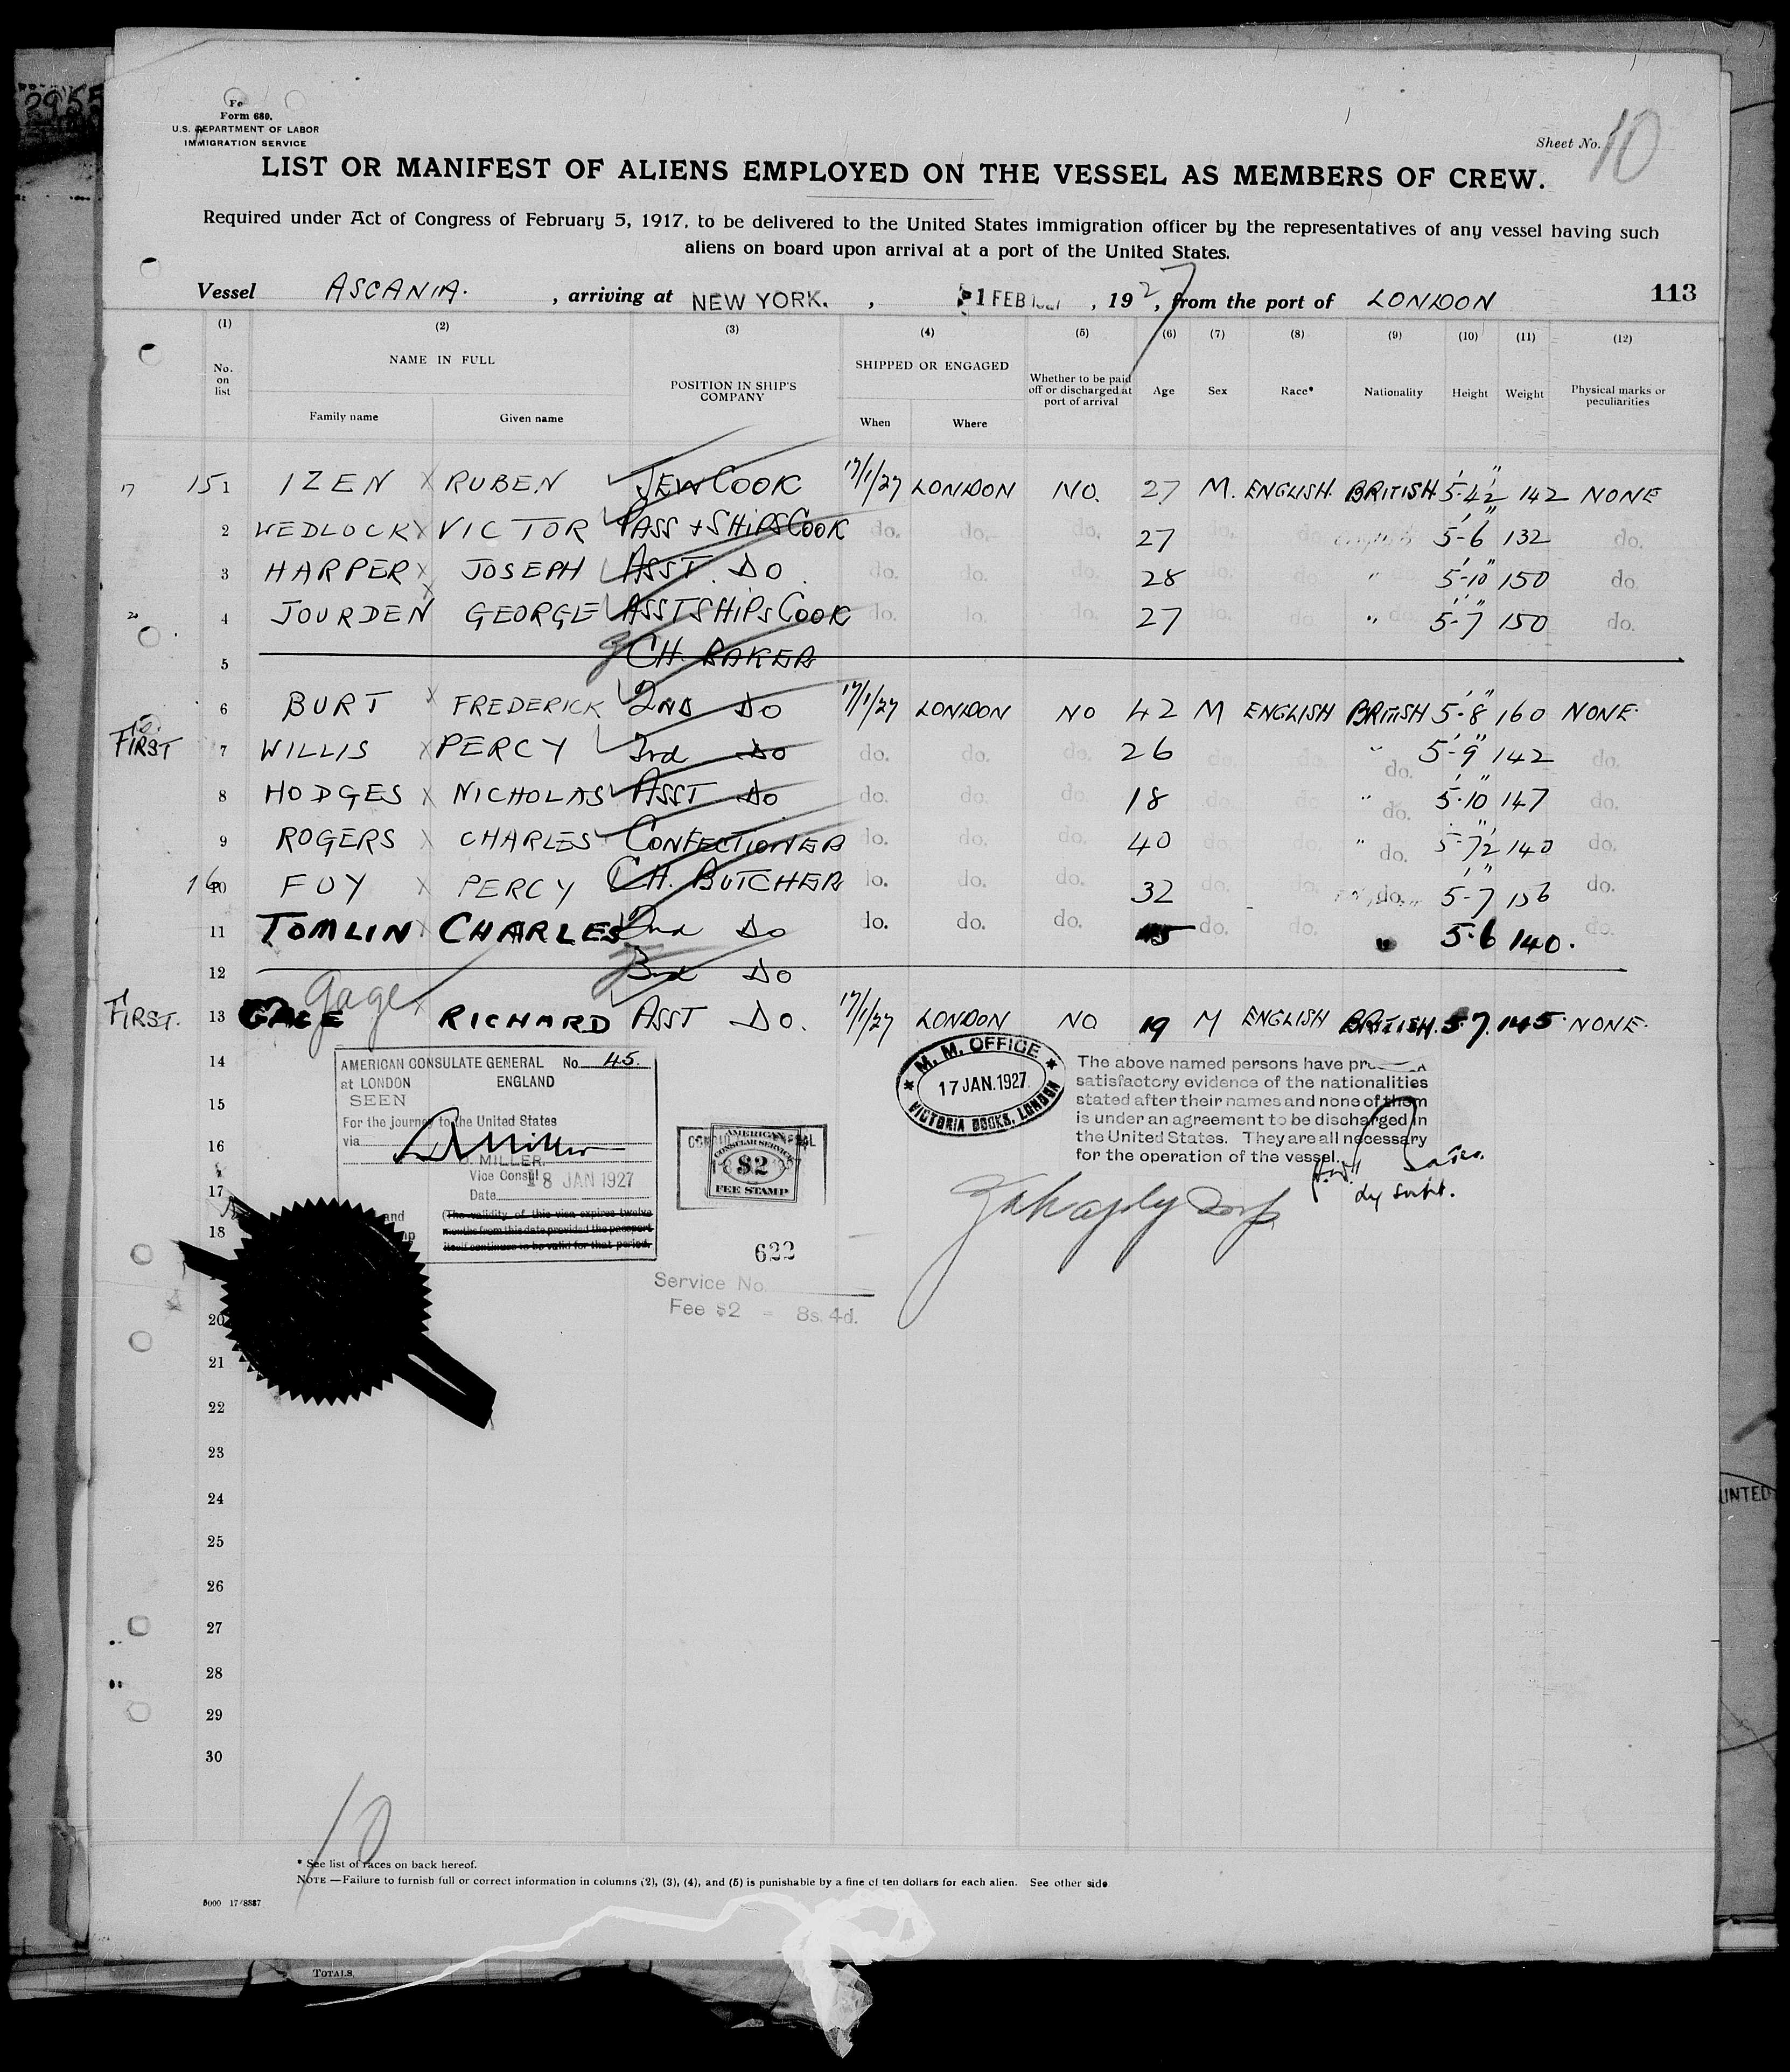 Form 680.
U.S. DEPARTMENT OF LABOR
IMMIGRATION SERVICE
Sheet No. 10
LIST OR MANIFEST OF ALIENS EMPLOYED ON THE VESSEL AS MEMBERS OF CREW.
Required under Act of Congress of February 5, 1917, to be delivered to the United States immigration officer by the representatives of any vessel having such
aliens on board upon arrival at a port of the United States.
Vessel ASCANIA. , arriving at NEW YORK. , 1 FEB 1927 , 1927, from the port of LONDON 113
(1) (2) (3) (4) (5) (6) (7) (8) (9) (10) (11) (12)
No. on list NAME IN FULL Family name Given name POSITION IN SHIP'S COMPANY SHIPPED OR ENGAGED When Where Whether to be paid off or discharged at port of arrival Age Sex Race* Nationality Height Weight Physical marks or peculiarities
151 IZEN X RUBEN JEW COOK 17/1/27 LONDON NO. 27 M. ENGLISH. BRITISH. 5'-4½" 142 NONE
2 WEDLOCK X VICTOR PASS + SHIPS COOK do. do. do. 27 do. do. 5'-6" 132 do.
3 HARPER X JOSEPH ASST. DO. do. do. do. 28 do. do. " 5'-10" 150 do.
4 JOURDEN X GEORGE ASST SHIPS COOK do. do. do. 27 do. do. " do. 5'-7" 150 do.
5 CH. BAKER
6 BURT X FREDERICK 2ND DO 17/1/27 LONDON NO 42 M ENGLISH BRITISH 5'-8" 160 NONE
FIRST 7 WILLIS X PERCY 3rd DO do. do. do. 26 do. do. " do. 5'-9" 142 do.
8 HODGES X NICHOLAS ASST DO do. do. do. 18 do. do. " do. 5'-10" 147 do.
9 ROGERS X CHARLES CONFECTIONER do. do. do. 40 do. do. " do. 5'-7½" 140 do.
160 FOY X PERCY CH. BUTCHER do. do. do. 32 do. do. do. 5'-7" 156 do.
11 TOMLIN X CHARLES 2nd DO do. do. do. 45 do. do. " 5.6 140. do.
12 3rd DO
FIRST. 13 GAGE Gage X RICHARD ASST DO. 17/1/27 LONDON NO 19 M ENGLISH BRITISH. 5.7. 145. NONE.
14
15
16
17
18
20
21
22
23
24
25
26
27
28
29
30
AMERICAN CONSULATE GENERAL No. 45.
at LONDON ENGLAND
SEEN
For the journey to the United States
via
MILLER.
Vice Consul
18 JAN 1927
Date
(The validity of this visa expires twelve
months from this date provided the passport
itself continues to be valid for that period.
AMERICAN
CONSULAR SERVICE
$2
FEE STAMP
622
Service No.
Fee $2 = 8s. 4d.
M. M. OFFICE
17 JAN. 1927
VICTORIA DOCKS, LONDON
The above named persons have
satisfactory evidence of the nationalities
stated after their names and none of them
is under an agreement to be discharged in
the United States. They are all necessary
for the operation of the vessel.
10
* See list of races on back hereof.
NOTE.—Failure to furnish full or correct information in columns (2), (3), (4), and (5) is punishable by a fine of ten dollars for each alien. See other side
TOTALS